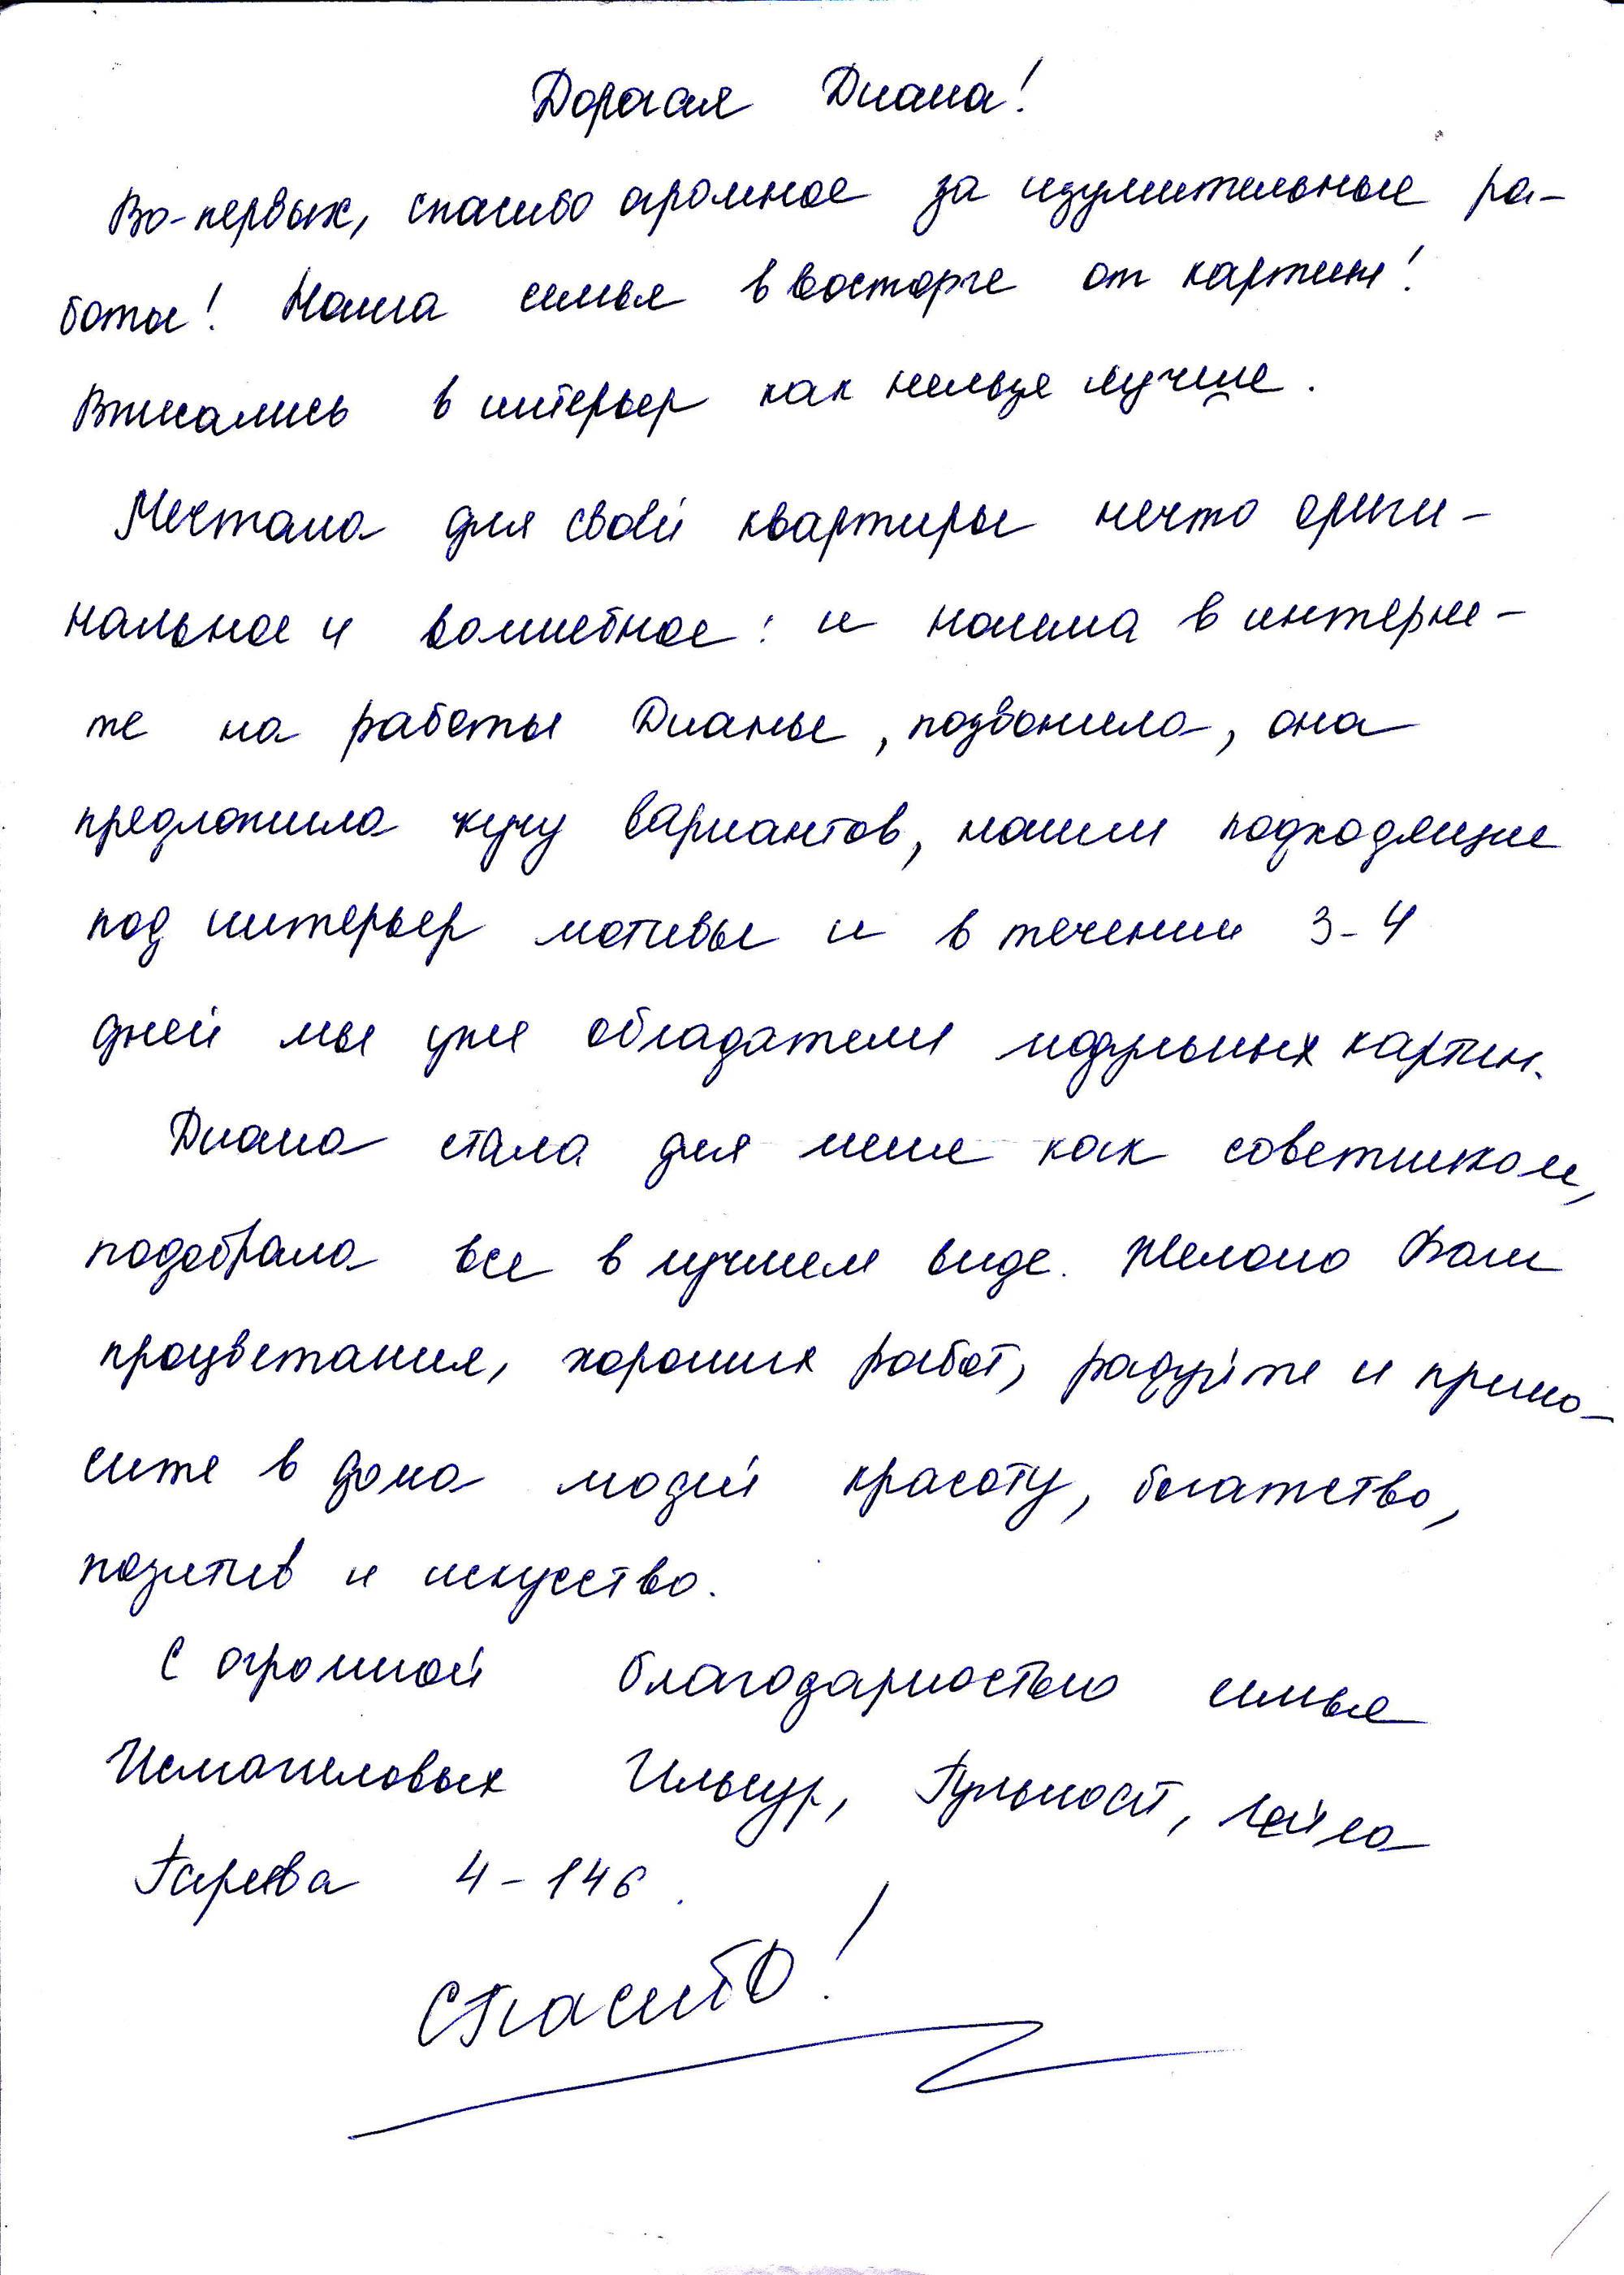 Дорогая Диана!
Во-первых, спасибо огромное за изумительные ра-
боты! Наша семья в восторге от картин!
Вписались в интерьер как нельзя лучше.
Мечтала для своей квартиры нечто ориги-
нальное и волшебное: и нашла в интерне-
те на работы Дианы, позвонила, она
предложила кучу вариантов, нашли подходящие
под интерьер мотивы и в течении 3-4
дней мы уже обладатели модульных картин.
Диана стала для меня как советником,
подобрала все в лучшем виде. Желаю Вам
процветания, хороших работ, радуйте и прино-
сите в дома людей красоту, богатство,
позитив и искусство.
С огромной благодарностью семья
Исмагиловых Ильнур, Гульназ, Лейла
Гареева 4-146.
Спасибо!